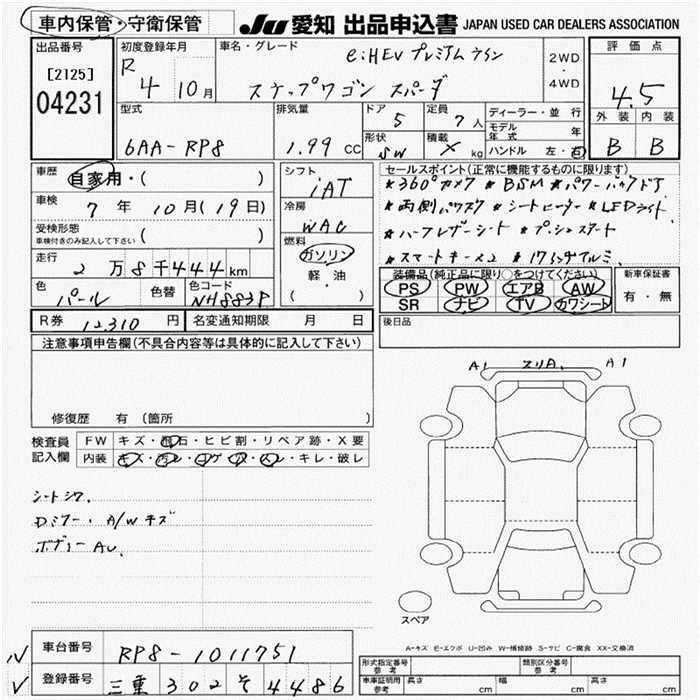 車内保管・守衛保管
JU 愛知 出品申込書 JAPAN USED CAR DEALERS ASSOCIATION
出品番号
[2125]
04231
初度登録年月
R 4 10 月
車名・グレード
e:HEV プレミアムライン
ステップワゴン スパーダ
2WD
・
4WD
評価点
4.5
外装 内装
B B
型式
6AA-RP8
排気量
1.99 CC
ドア
5
定員
7 人
形状
SW
積載
X kg
ディーラー・並行
モデル年式 年
ハンドル 左・右
車歴
自家用・( )
車検
7 年 10 月(19日)
受検形態
車検付きのみ記入して下さい ( )
走行
2 万 8 千 444 km
色
パール
色替
色コード
NH883P
シフト
iAT
冷房
WAC
燃料
ガソリン
軽・油
( )
セールスポイント(正常に機能するものに限ります)
*360°カメラ *BSM *パワーバックドア
*両側パワスラ *シートヒーター *LEDライト
*ハーフレザーシート *プッシュスタート
*スマートキー×2 *17インチアルミ
装備品(純正品に限り○をつけてください)
PS PW エアB AW
SR ナビ TV カワシート
新車保証書
有・無
後日品
R券 12,310 円
名変通知期限 月 日
注意事項申告欄(不具合内容等は具体的に記入して下さい)
修復歴 有(箇所 )
検査員
記入欄
FW キズ・飛石・ヒビ割・リペア跡・X要
内装 キズ・汚レ・コゲ・穴・スレ・キレ・破レ
シートシワ.
Dミラー. A/Wキズ
ボデーAU.
A1 スリA. A1
スペア
A-キズ E-エクボ U-凹み W-補修跡 S-サビ C-腐食 XX-交換済
車台番号 RP8-1011751
登録番号 三重 302 そ 4486
形式指定番号 参考
類別区分番号 参考
車庫証明用 参考
長さ cm
幅 cm
高さ cm